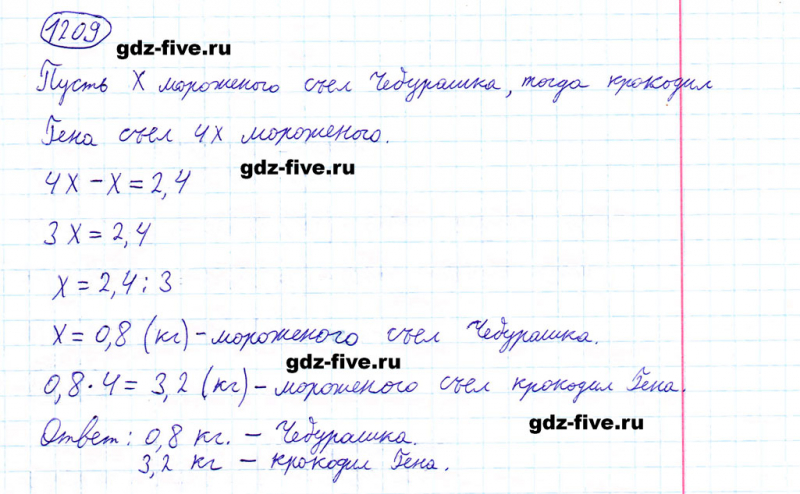 1209
gdz-five.ru
Пусть х мороженого съел Чебурашка, тогда крокодил
Гена съел 4х мороженого.
gdz-five.ru
4х - х = 2,4
3х = 2,4
х = 2,4 : 3
х = 0,8 (кг) - мороженого съел Чебурашка.
gdz-five.ru
0,8 · 4 = 3,2 (кг) - мороженого съел крокодил Гена.
gdz-five.ru
Ответ: 0,8 кг. - Чебурашка.
3,2 кг - крокодил Гена.